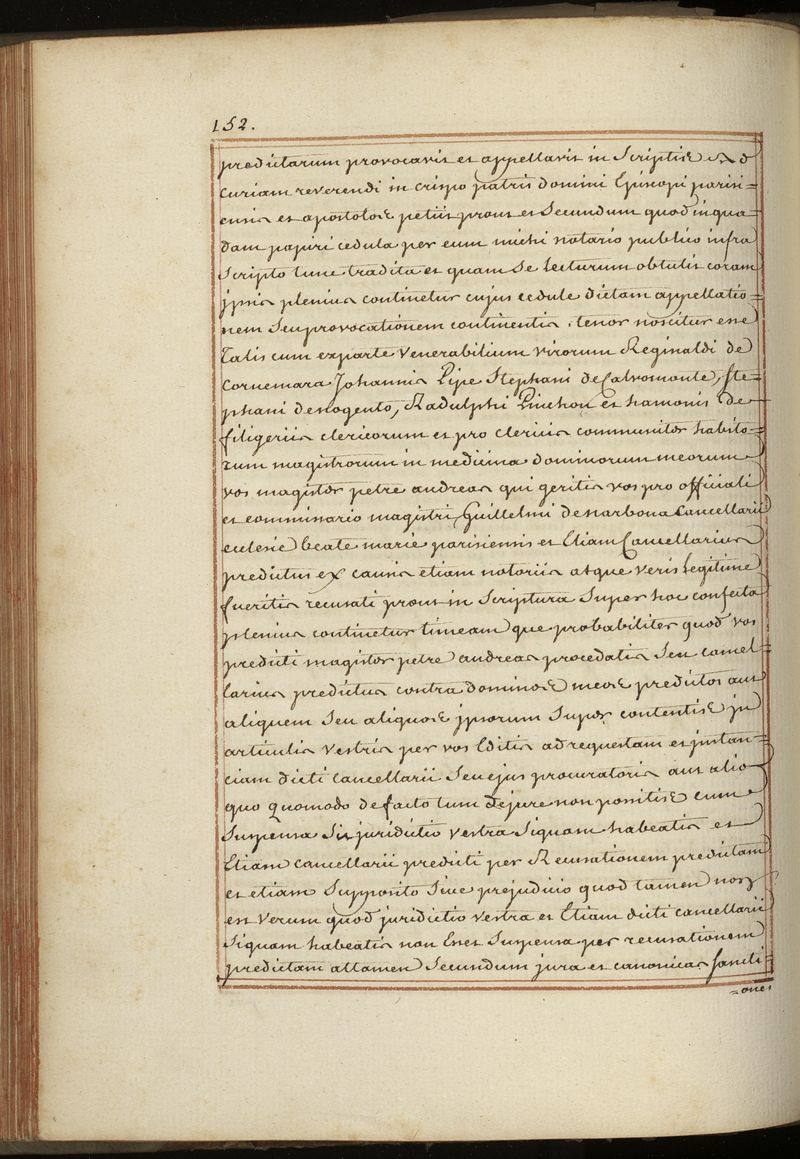 152.
predictarum provocavit et appellavit in Scriptis ad
curiam reverendi in crispo patris domini Episcopi parisi=
ensis et apostolos petiit prout et Secundum quod in qua=
dam papiri cedula per eum michi notario publico infra
Scripto tunc tradita et quam Se lecturum obtulit coram
ipsis plenius continetur cujus cedule dictam appellatio=
nem Seu provocationem continentis tenor noscitur esse
Talis cum exparte Venerabilium virorum Reginaldi de
Cornemara Johannis Pipe Stephani de Calvomonte, Ste=
phani denogento, Radulphi Pinchon et hamonis de
filigeriis clericorum et pro clericis communiter habito=
rum magistrorum in medicina dominorum meorum
vos magister petre andreas qui geritis vos pro officiali
et commissario magistri Guillelmi denarbona Cancellarii
eclesie beate marie parisiensis et Etiam Cancellarius
predictus ex causis etiam notoriis atque veris Legitime
fueritis recusati prout in Scriptura Super hoc confecta
plenius continetur timeam que probabiliter quod vos
predicti magister petre andreas procedatis Seu cancel=
larius predictus contra dominos meos predictos aut
aliquem Seu aliquos ipsorum Super contentis in
articulis Vestris per vos Editis ad requestam et instan=
ciam dicti cancellarii Seu ejus procuratoris aut alio
quo quomodo defacto tum dejure non possitis cum
Suspensa Sit juridictio vestra Siquam habeatis et
Etiam cancellarii predicti per Recusationem predictam
et etiam Supposito Sine prejudicio quod tamen non
est verum quod juridictio vestra et Etiam dicti cancellarii
Siquam habeatis non Esset Suspensa per recusationem
predictam attamen Secundum jura et canonicas Sancti
=ones